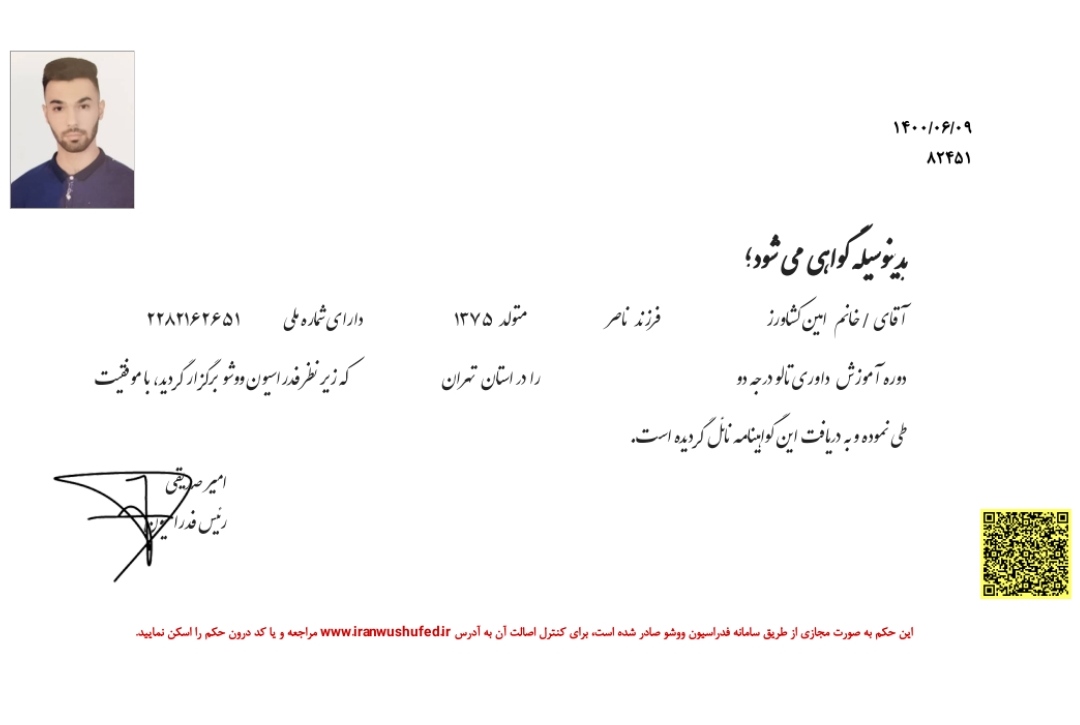 ۱۴۰۰/۰۶/۰۹
۸۲۴۵۱
بدینوسیله گواهی می شود؛
آقای / خانم امین کشاورز فرزند ناصر متولد ۱۳۷۵ دارای شماره ملی ۲۲۸۲۱۶۲۶۵۱
دوره آموزش داوری تالو درجه دو را در استان تهران که زیر نظر فدراسیون ووشو برگزار گردید، با موفقیت
طی نموده و به دریافت این گواهینامه نائل گردیده است.
امیر صدیقی
رئیس فدراسیون
این حکم به صورت مجازی از طریق سامانه فدراسیون ووشو صادر شده است، برای کنترل اصالت آن به آدرس www.iranwushufed.ir مراجعه و یا کد درون حکم را اسکن نمایید.